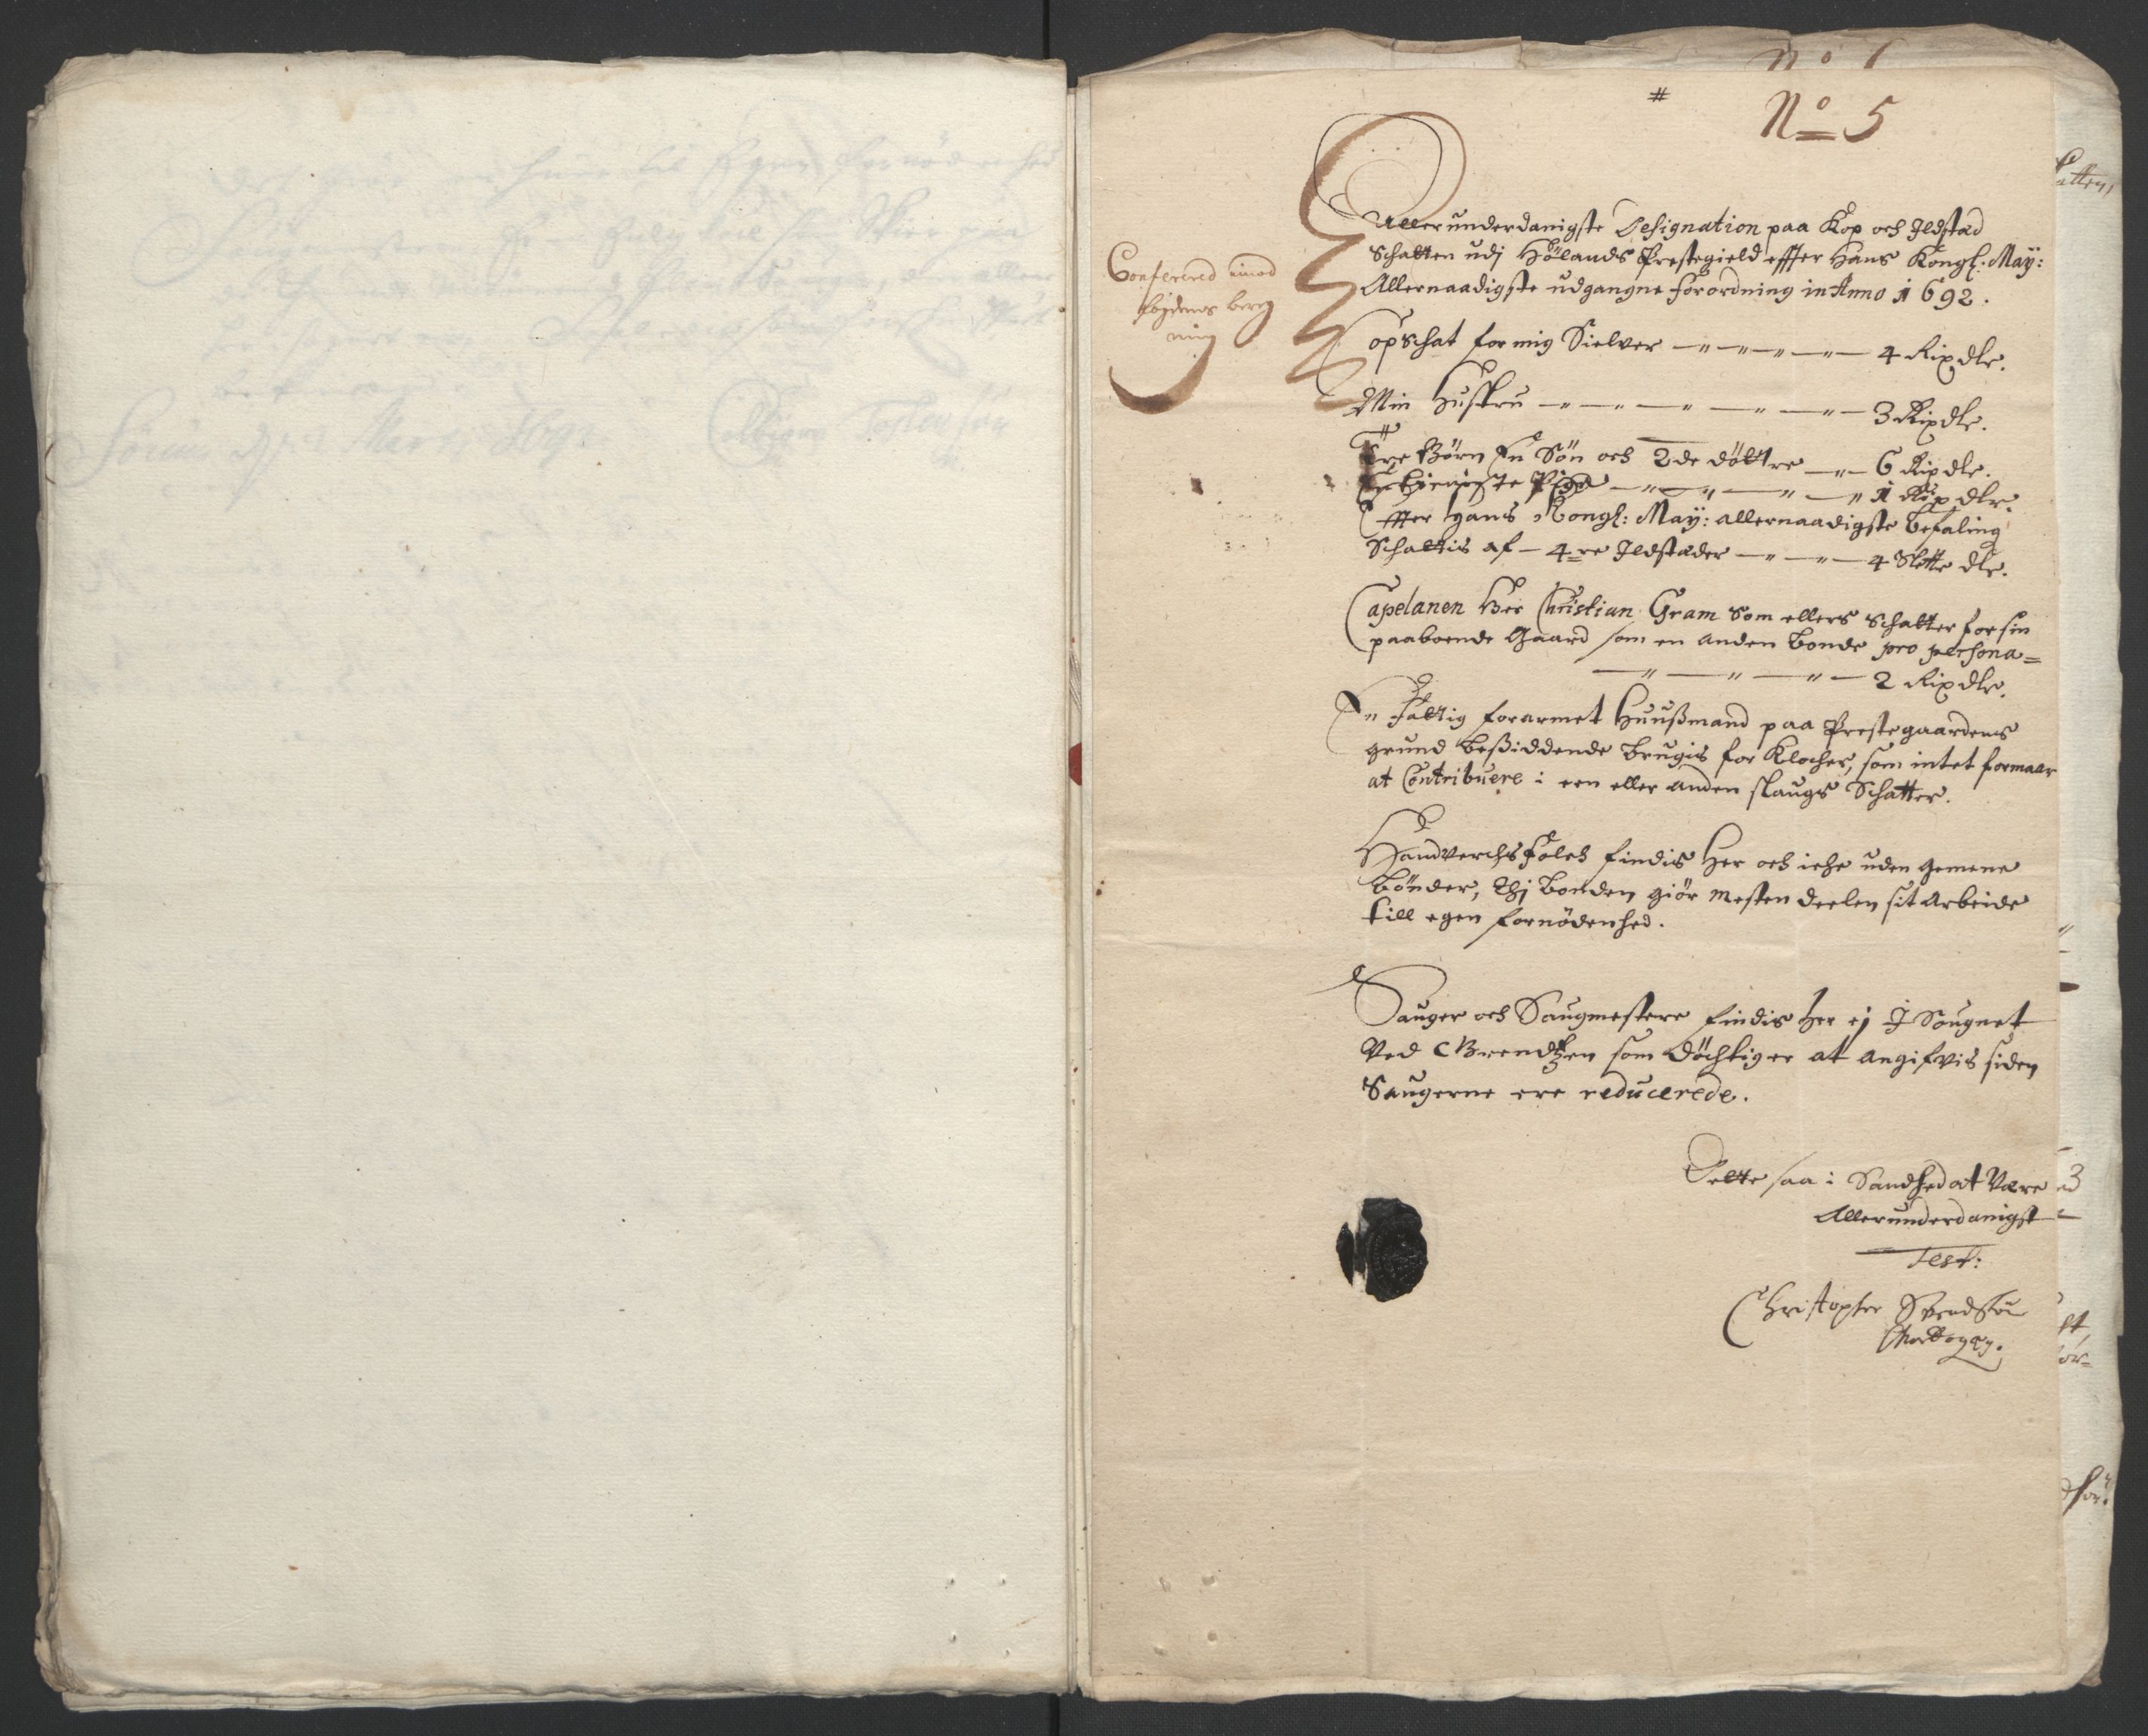 #
No 5
Allerunderdanigste Designation paa Kop och Ildstad
Schatten udj Hölands Prestegield effter Hans Kongl: May:
Allernaadigste udgangne forordning in Anno 1692.
Conferered imod
Kopschat for mig Sielver 4 Rixdlr.
Min Hustru 3 Rixdlr.
Tre Börn En Sön och 2de döttre 6 Rixdlr.
En tieniste Pige 1 Rixdlr.
Effter Hans Kongl: May: allernaadigste befaling
Schattis af 4re Ildstæder 4 Slette dlr.
Capelanen Her Christian Gram som ellers schatter for sin
paaboende Gaard som en anden bonde pro persona=
2 Rixdlr.
En fattig forarmet Huußmand paa Prestegaardens
grund beßiddende brugis for Klocher, som intet formaar
at Contribuere i een eller anden slaugs Schatter.
Handverchs folch findis her och iche uden gemene
bönder, thj bonden giör mesten deelen sit arbeide
till egen fornödenhed.
Sauger och Saugmestere findis her ej i Sougnet
Ved som döchtig er at angifvis siden
Saugerne ere reducerede.
Dette saa i Sandhed at Være
Allerunderdanigst
Test:
Christopher Svendsön